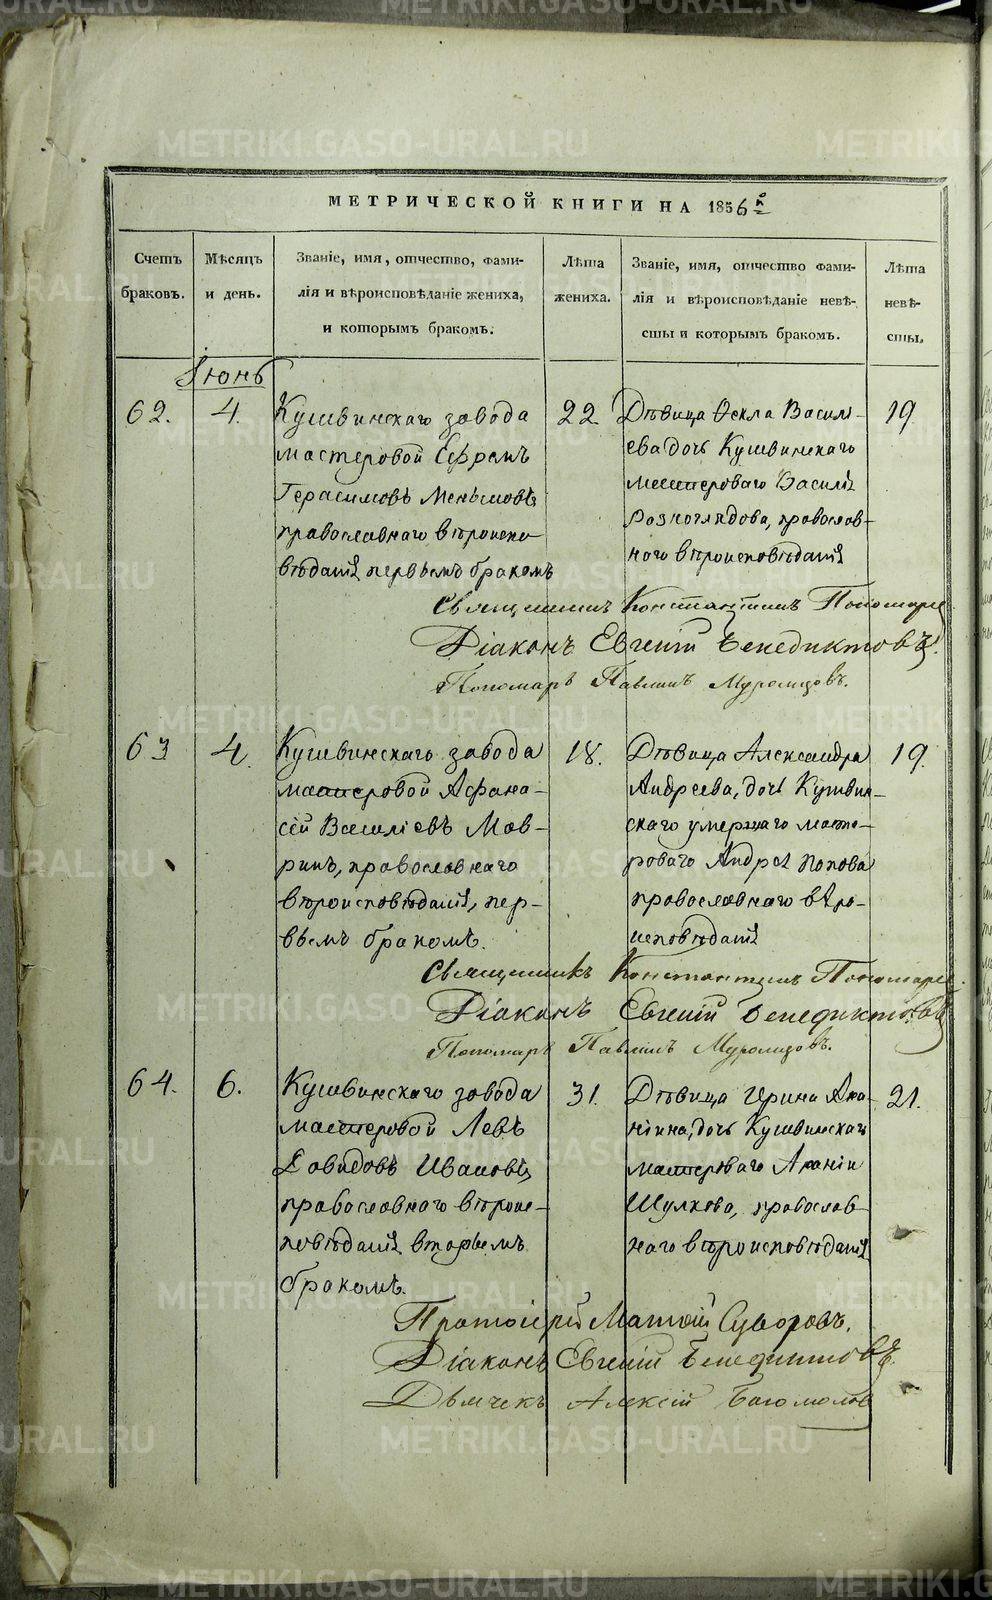 МЕТРИЧЕСКОЙ КНИГИ НА 1856й
Счетъ браковъ.
Мѣсяцъ и день.
Званіе, имя, отчество, фами-
лія и вѣроисповѣданіе жениха,
и которымъ бракомъ.
Лѣта жениха.
Званіе, имя, отчество фами-
лія и вѣроисповѣданіе невѣ-
сты и которымъ бракомъ.
Лѣта невѣ-
сты.
Іюнь
62.
4.
Кушвинскаго завода
мастеровой Ефремъ
Герасимовъ Меньшовъ
православнаго вѣроиспо
вѣданія первымъ бракомъ
22
Дѣвица Ѳекла Василь-
ева дочь Кушвинскаго
мастероваго Василія
Розноглядова, православ-
ного вѣроисповѣданія
19
Священникъ Константинъ Пономарев
Діаконъ Евгеній Бенедиктовъ.
Пономарь Павлинъ Муромцовъ.
63
4.
Кушвинскаго завода
мастеровой Афана-
сій Василіевъ Мов-
ринъ, православнаго
вѣроисповѣданія, пер-
вымъ бракомъ.
18.
Дѣвица Александра
Андреева, дочь Кушвин-
скаго умершаго масте-
роваго Андрея Попова
православнаго вѣро-
исповѣданія
19.
Священникъ Константинъ Пономарев
Діаконъ Евгеній Бенедиктовъ
Пономарь Павлинъ Муромцовъ.
64.
6.
Кушвинскаго завода
мастеровой Левъ
Давидовъ Ивановъ
православного вѣроис-
повѣданія вторымъ
бракомъ.
31.
Дѣвица Ирина Ана-
ніина, дочь Кушвинскаго
мастероваго Ананіи
Шулкова, православ-
наго вѣроисповѣданія
21.
Протоіерей Матѳій Суворовъ.
Діаконъ Евгеній Бенедиктовъ.
Дьячекъ Алексій Богомолов
METRIKI.GASO-URAL.RU